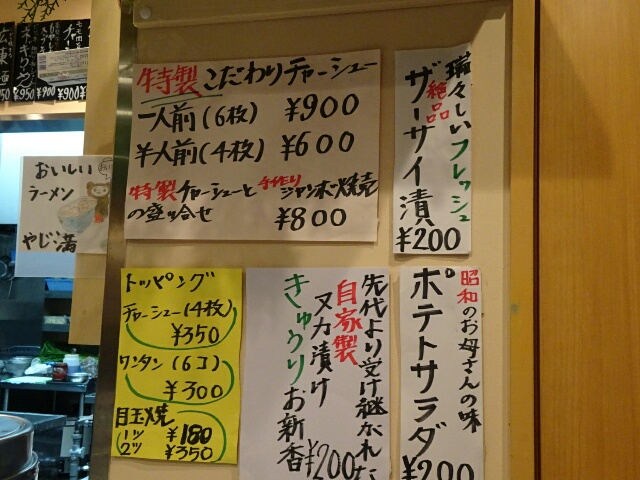 特製こだわりチャーシュー
一人前(6枚) ¥900
半人前(4枚) ¥600
特製チャーシューと手作りジャンボ焼売
の盛り合せ ¥800
瑞々しいフレッシュ
絶品
ザーサイ漬
¥200
おいしい
ラーメン
やじ満
トッピング
チャーシュー(4枚)
¥350
ワンタン(6コ)
¥300
目玉焼
1ツ ¥180
2ツ ¥350
先代より受け継がれた
自家製
ヌカ漬け
きゅうりお新香
¥200
昭和のお母さんの味
ポテトサラダ
¥200
¥950
¥900
¥900